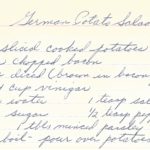 German Potato Salad
sliced cooked potatoes
chopped bacon
diced (brown in bacon
cup vinegar
water 1 teasp sal
sugar ½ teasp pep
1 tbls minced parsley
boil - pour over potatoes